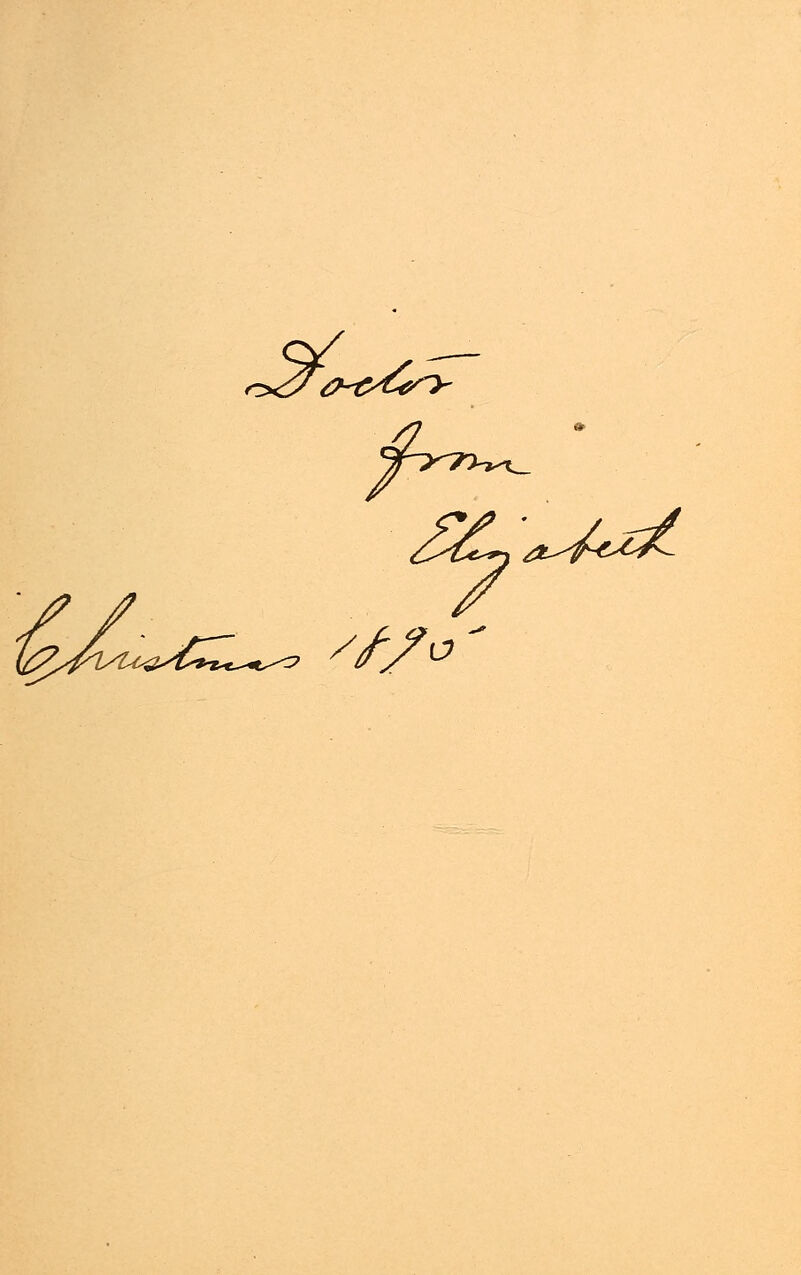 Doctor
from
Elizabeth
Christmas 1895